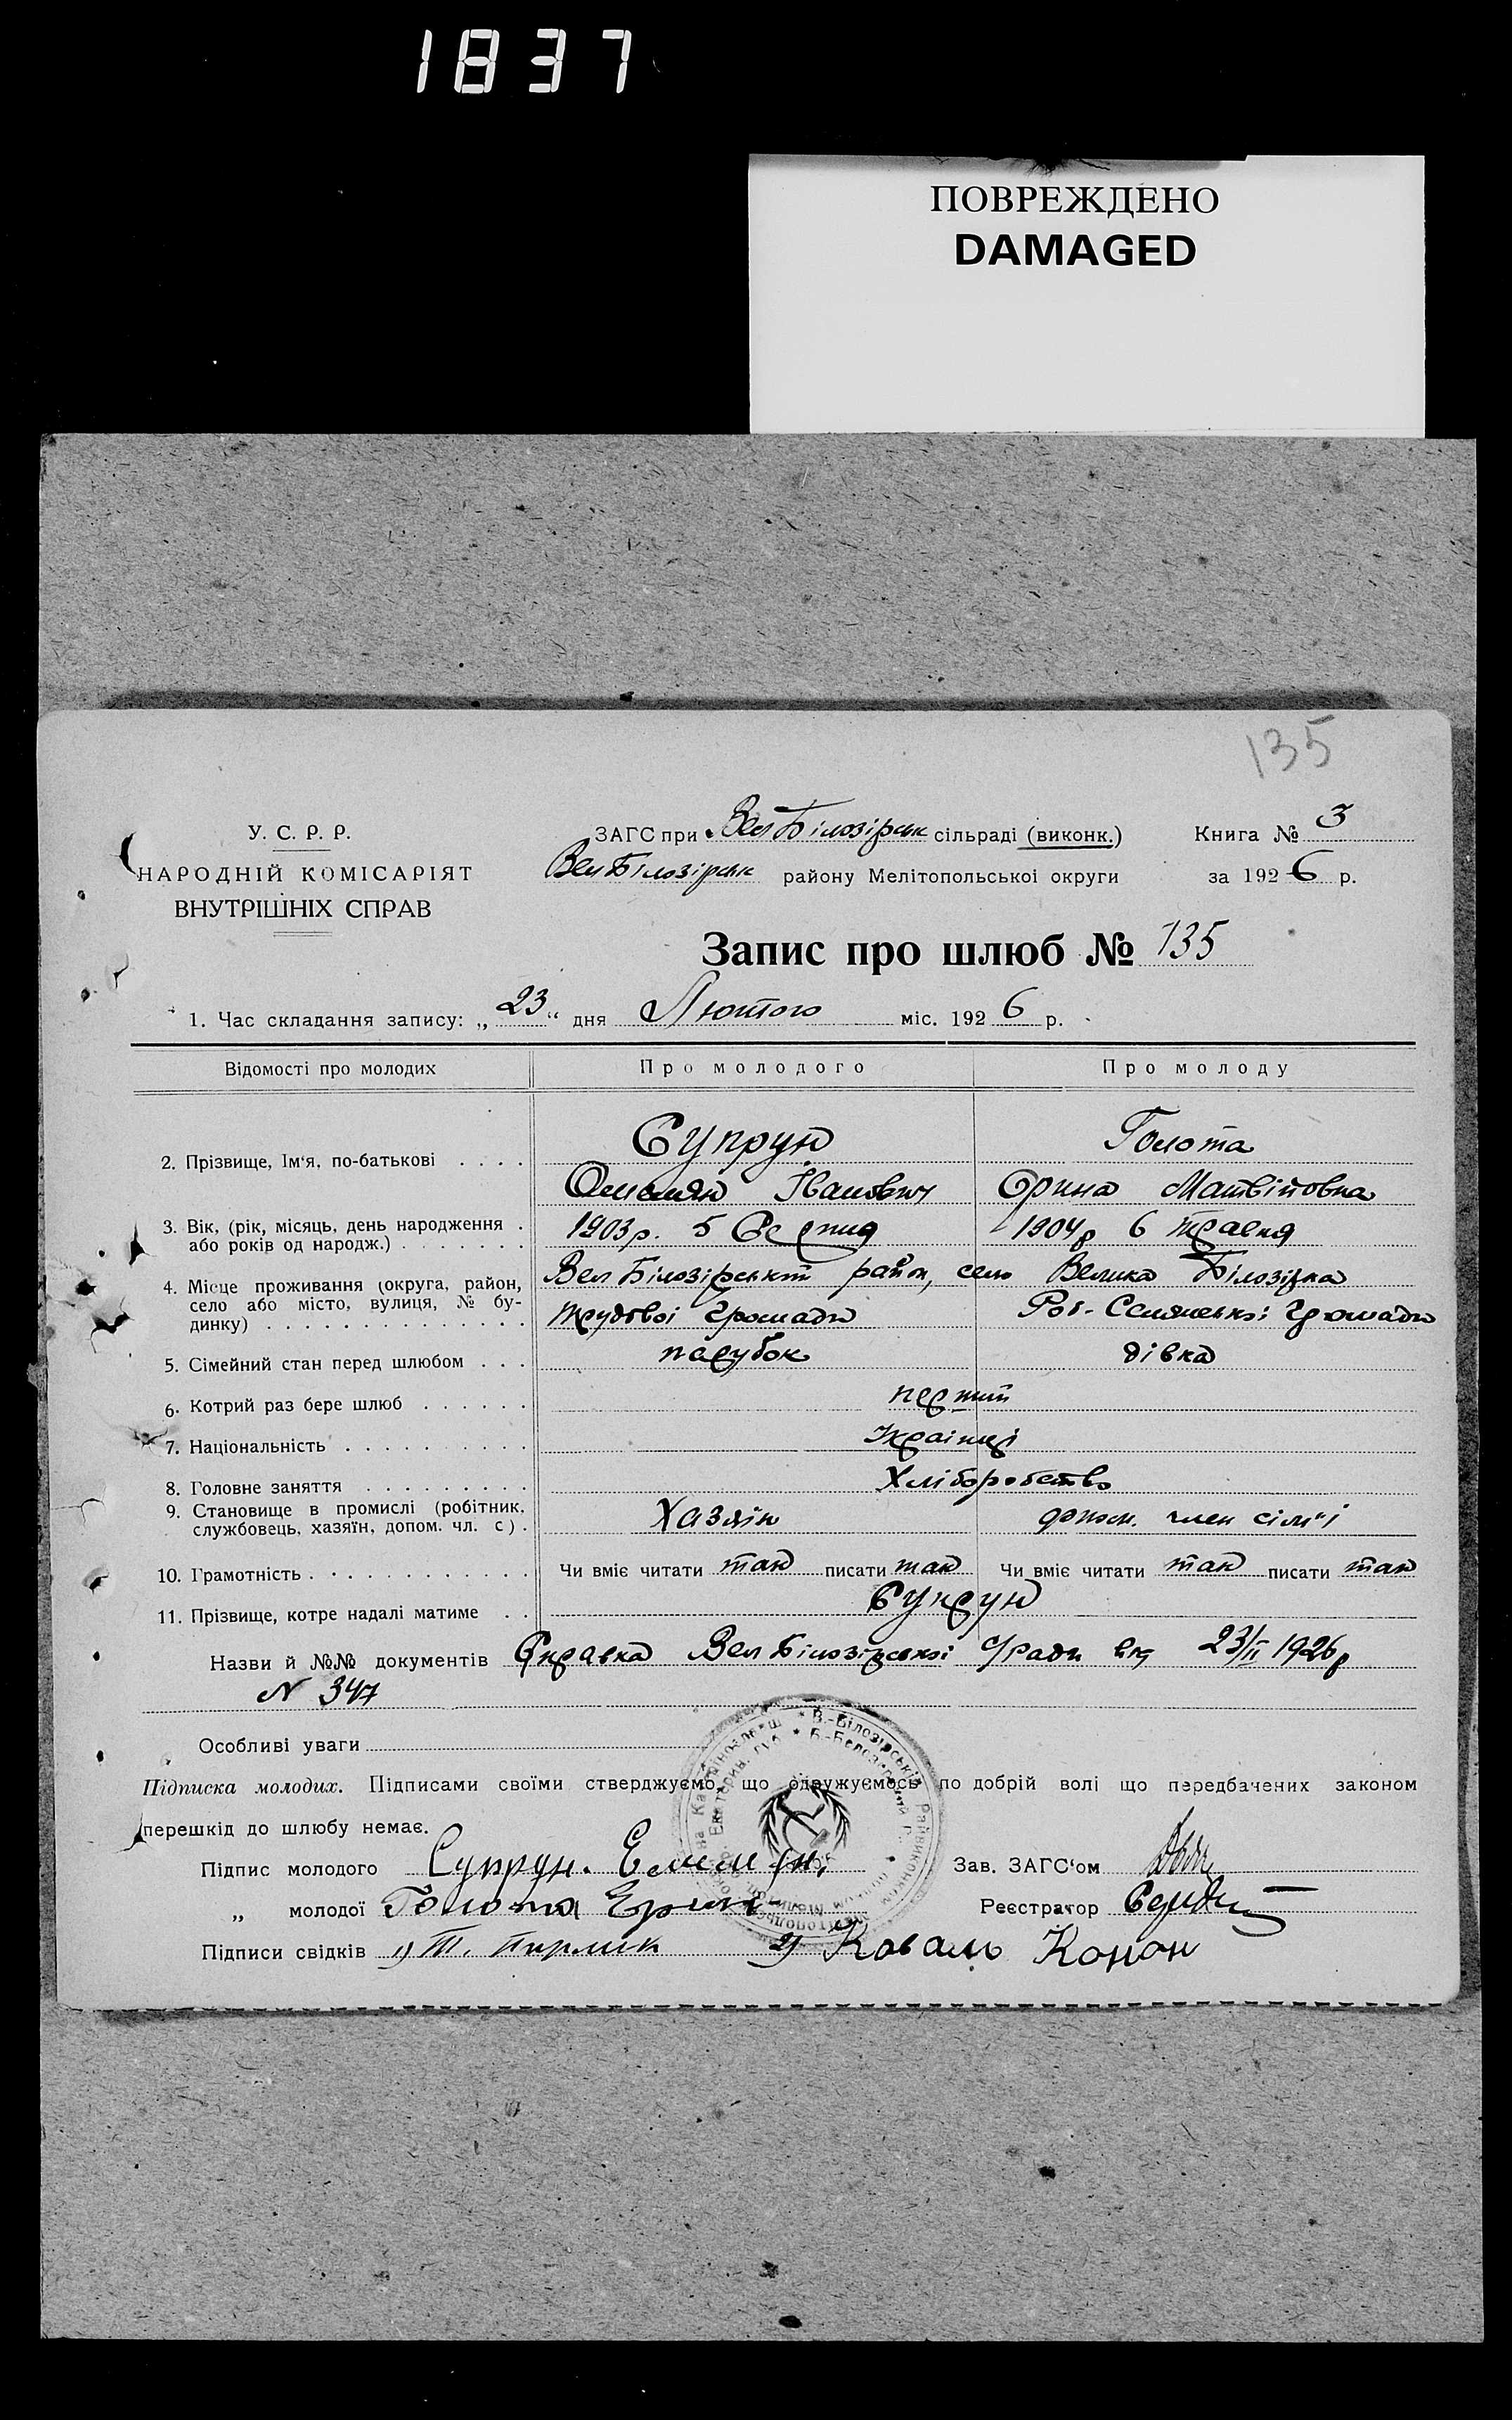 1837
ПОВРЕЖДЕНО
DAMAGED
135
У. С. Р. Р.
НАРОДНІЙ КОМІСАРІЯТ
ВНУТРІШНІХ СПРАВ
ЗАГС при Вел Білозірськ сільраді (виконк.)
Вел Білозірськ району Мелітопольської округи
Книга № 3
за 1926 р.
Запис про шлюб № 135
1. Час складання запису: „23“ дня Лютого міс. 1926 р.
Відомості про молодих Про молодого Про молоду
2. Прізвище, Ім'я, по-батькові . . . . Супрун Голота
Омелян Іванович Орина Матвійовна
3. Вік, (рік, місяць, день народження . або років од народж.) . . . . . . . . 1903 р. 5 Серпня 1904 р 6 травня
4. Місце проживання (округа, район, Вел Білозірський район, село Велика Білозірка
село або місто, вулиця, № бу-
динку) . . . . . . . . . . . . . . Трудової громади Роб-Селянської громади
5. Сімейний стан перед шлюбом . . . парубок дівка
6. Котрий раз бере шлюб . . . . . . перший
7. Національність . . . . . . . . . . Українці
8. Головне заняття . . . . . . . . . Хліборобство
9. Становище в промислі (робітник,
службовець, хазяїн, допом. чл. с) . Хазяїн допом. член сім'ї
10. Грамотність . . . . . . . . . . . . Чи вміє читати так писати так Чи вміє читати так писати так
11. Прізвище, котре надалі матиме . . Супрун
Назви й №№ документів Справка Вел Білозірської с/ради від 23/II 1926 р
N 347
Особливі уваги
Підписка молодих. Підписами своїми стверджуємо, що одружуємось по добрій волі що передбачених законом
перешкід до шлюбу немає.
Підпис молодого Супрун. Зав. ЗАГС'ом
„ молодої Голота Реєстратор
Підписи свідків 1) Т. 2) Коваль Конон
В.-Білозірський Райвиконком